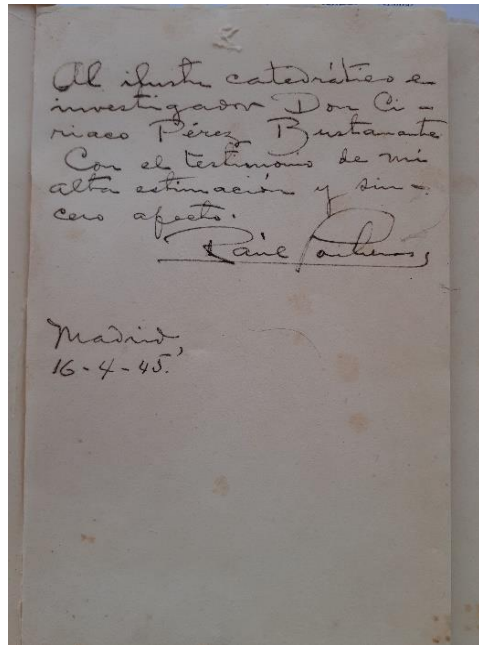 Al ilustre catedrático e
investigador Don Ci-
riaco Pérez Bustamante
Con el testimonio de mi
alta estimación y sin-
cero afecto.
Raúl Contreras
Madrid,
16-4-45.